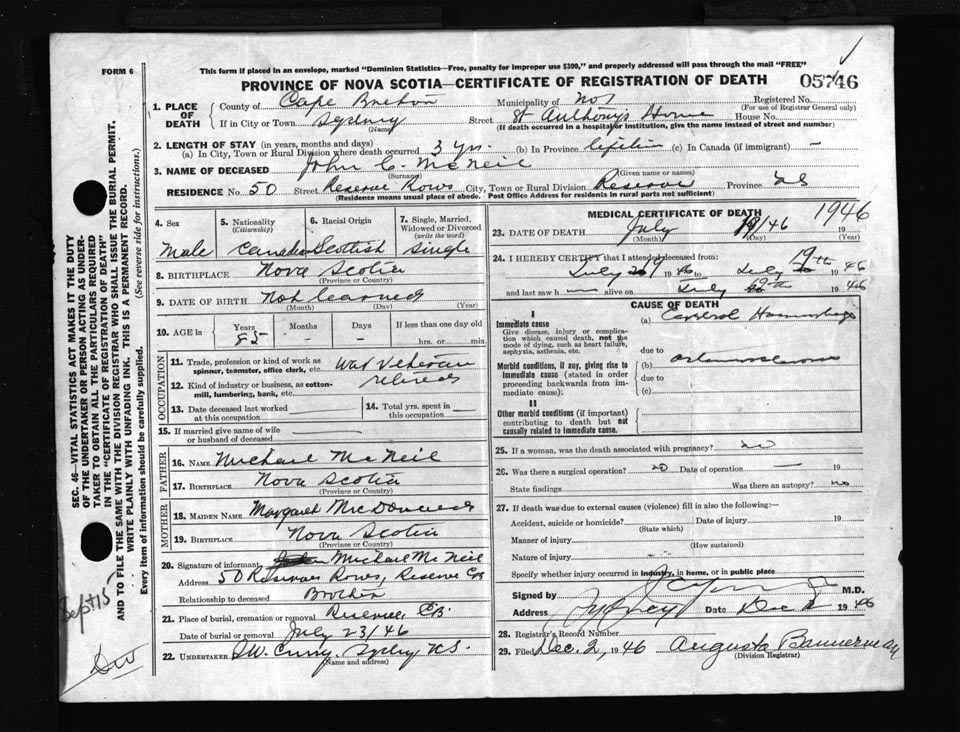 FORM 6
This form if placed in an envelope, marked "Dominion Statistics—Free, penalty for improper use $300," and properly addressed will pass through the mail "FREE"
PROVINCE OF NOVA SCOTIA—CERTIFICATE OF REGISTRATION OF DEATH
05746
1. PLACE OF DEATH
County of Cape Breton Municipality of No 1 Registered No.
(For use of Registrar General only)
If in City or Town Sydney Street St Anthony's Home House No.
(Name) (If death occurred in a hospital or institution, give the name instead of street and number)
2. LENGTH OF STAY (in years, months and days)
(a) In City, Town or Rural Division where death occurred 3 yrs. (b) In Province lifetime (c) In Canada (if immigrant) —
3. NAME OF DECEASED John C. McNeil
(Surname) (Given name or names)
RESIDENCE No. 50 Street Reserve Rows City, Town or Rural Division Reserve Province NS
(Residence means usual place of abode. Post Office Address for residents in rural parts not sufficient)
4. Sex
Male
5. Nationality
(Citizenship)
Canadian
6. Racial Origin
Scottish
7. Single, Married, Widowed or Divorced
(write the word)
Single
8. BIRTHPLACE Nova Scotia
(Province or Country)
9. DATE OF BIRTH Not learned
(Month) (Day) (Year)
10. AGE in
Years Months Days If less than one day old
85 — — hrs. or min.
OCCUPATION
11. Trade, profession or kind of work as spinner, teamster, office clerk, etc. War Veteran
12. Kind of industry or business, as cotton-mill, lumbering, bank, etc. retired
13. Date deceased last worked at this occupation
14. Total yrs. spent in this occupation
15. If married give name of wife or husband of deceased
FATHER
16. NAME Michael McNeil
17. BIRTHPLACE Nova Scotia
(Province or Country)
MOTHER
18. MAIDEN NAME Margaret
19. BIRTHPLACE Nova Scotia
(Province or Country)
20. Signature of informant Michael McNeil
Address 50 Reserve Rows, Reserve CB
Relationship to deceased Brother
21. Place of burial, cremation or removal Reserve, CB
Date of burial or removal July 23/46
22. UNDERTAKER Sydney NS.
(Name and address)
MEDICAL CERTIFICATE OF DEATH
23. DATE OF DEATH July 19/46 1946 19
(Month) (Day) (Year)
24. I HEREBY CERTIFY that I attended deceased from:
July 1946 to July 19th 1946
and last saw h alive on July 19th 1946
CAUSE OF DEATH
I
Immediate cause
Give disease, injury or complication which caused death, not the mode of dying, such as heart failure, asphyxia, asthenia, etc.
(a) Cerebral Haemorrhage
due to
Morbid conditions, if any, giving rise to immediate cause (stated in order proceeding backwards from immediate cause).
(b)
due to
(c)
II
Other morbid conditions (if important) contributing to death but not causally related to immediate cause.
25. If a woman, was the death associated with pregnancy? no
26. Was there a surgical operation? no Date of operation — 19
State findings Was there an autopsy? no
27. If death was due to external causes (violence) fill in also the following:—
Accident, suicide or homicide? Date of injury 19
(State which)
Manner of injury
(How sustained)
Nature of injury
Specify whether injury occurred in industry, in home, or in public place
Signed by M.D.
Address Sydney Date Dec 2 1946
28. Registrar's Record Number
29. Filed Dec. 2, 1946 Augusta Bannerman
(Division Registrar)
SEC. 46—VITAL STATISTICS ACT MAKES IT THE DUTY OF THE UNDERTAKER OR PERSON ACTING AS UNDERTAKER TO OBTAIN ALL THE PARTICULARS REQUIRED IN THE "CERTIFICATE OF REGISTRATION OF DEATH" AND TO FILE THE SAME WITH THE DIVISION REGISTRAR WHO SHALL ISSUE THE BURIAL PERMIT.
WRITE PLAINLY WITH UNFADING INK. THIS IS A PERMANENT RECORD.
Every item of information should be carefully supplied. (See reverse side for instructions.)
Sept 15